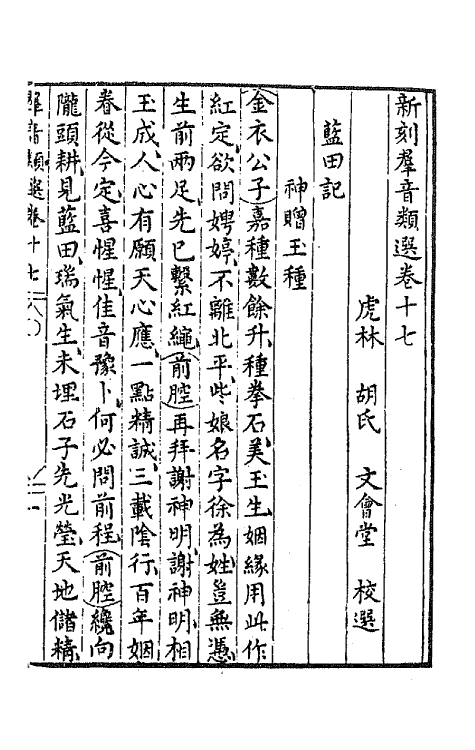 新刻羣音類選卷十七
虎林 胡氏 文會堂 校選
藍田記
神贈玉種
金衣公子嘉種數餘升、種拳石美玉生、姻緣用此作
紅定、欲問娉婷、不離北平、此娘名字徐為姓、豈無憑、
生前兩足、先已繫紅繩、前腔再拜謝神明、謝神明相
玉成、人心有願天心應、一點精誠、三載陰行、百年姻
眷從今定、喜惺惺、佳音豫卜、何必問前程、前腔纔向
隴頭耕、見藍田、瑞氣生、未埋石子先光瑩、天地儲精、
羣音類選卷十七